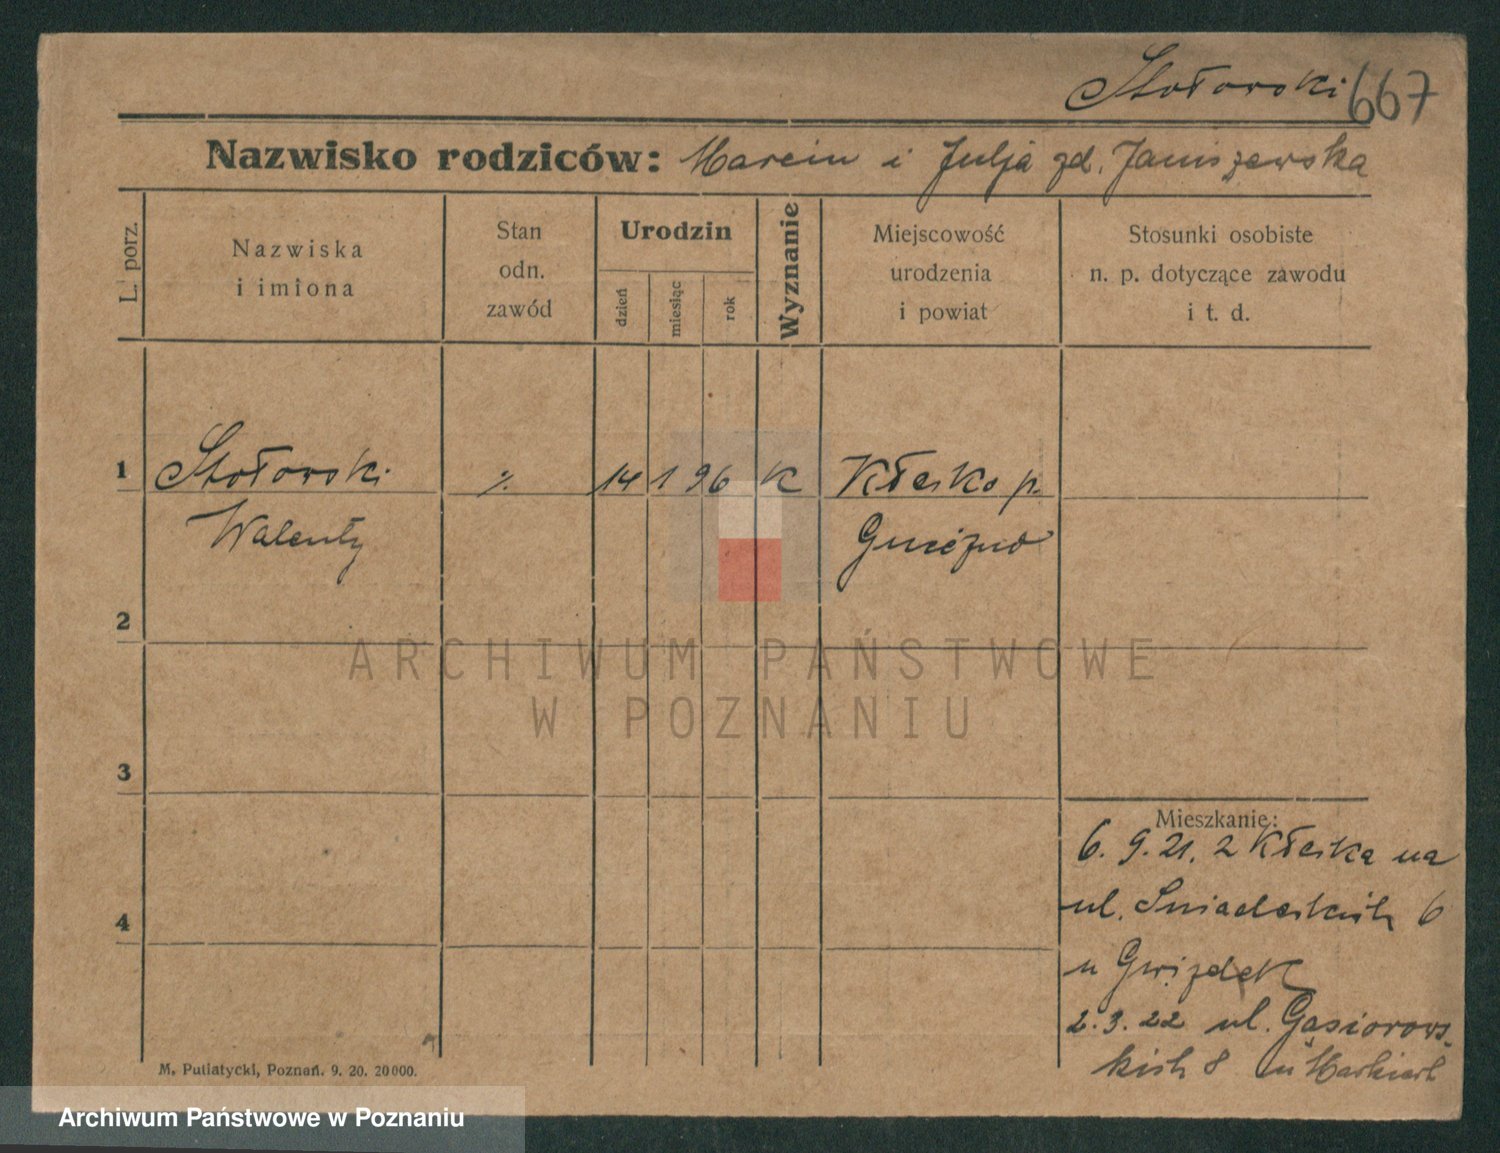 Stołowski 667
Nazwisko rodziców: Marcin i Julja zd. Janiszewska
L. porz.
Nazwiska
i imiona
Stan
odn.
zawód
Urodzin
dzień
miesiąc
rok
Wyznanie
Miejscowość
urodzenia
i powiat
Stosunki osobiste
n. p. dotyczące zawodu
i t. d.
1 Stołowski 14 1 96 K Kłecko p.
Walenty Gniezno
2
ARCHIWUM PAŃSTWOWE
W POZNANIU
3
Mieszkanie:
6. 9. 21. z Kłecka na
ul. Śniadeckich 6
4
u Gwizdek
2. 3. 22 ul. Gąsiorows-
kich 8 u
M. Putiatycki, Poznań. 9. 20. 20000.
Archiwum Państwowe w Poznaniu